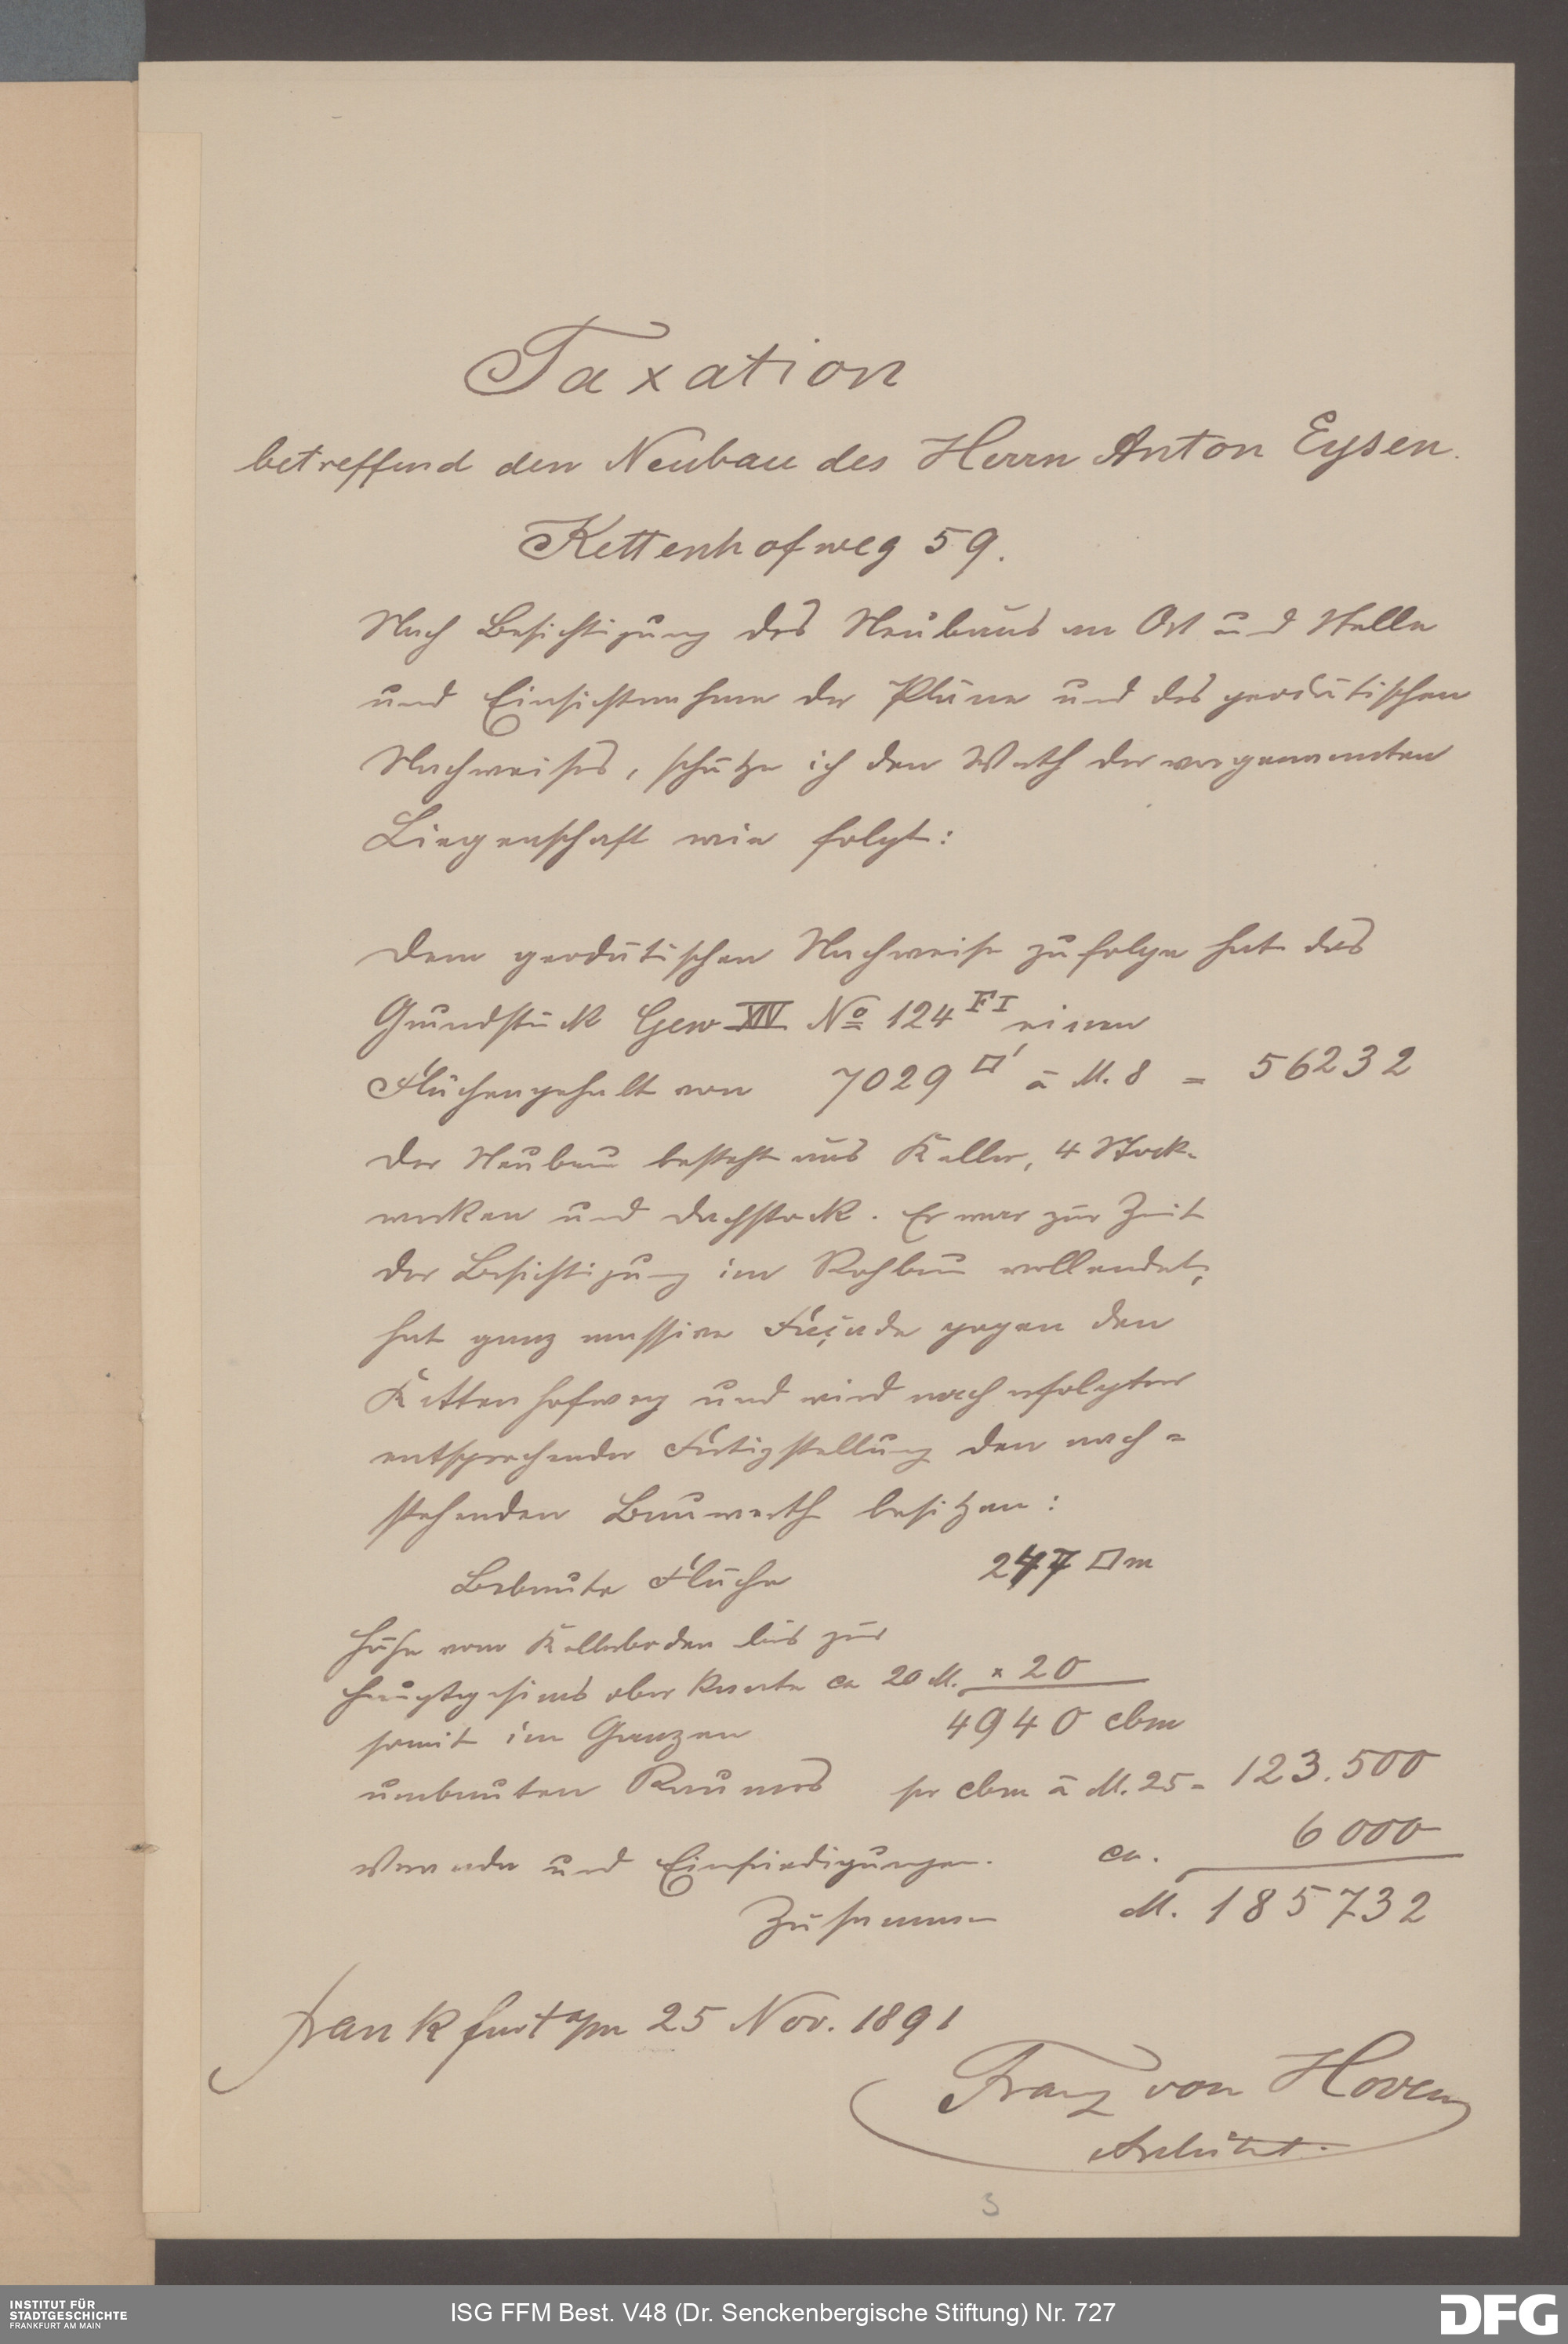 Taxation
betreffend den Neubau des Herrn Anton Eysen.
Kettenhofweg 59.
Nach Besichtigung des Neubaus an Ort und Stelle
und Einsichtnahme der Pläne und des geodätischen
Nachweises, schätze ich den Werth der vorgenannten
Liegenschaft wie folgt:
Dem geodätischen Nachweise zufolge hat das
Grundstück Gew. XIV No 124 FI einen
Flächengehalt von 7029 □' à M. 8 = 56232
Der Neubau besteht aus Keller, 4 Stock-
werken und Dachstock. Er war zur Zeit
der Besichtigung im Rohbau vollendet,
hat ganz massive Façade gegen den
Kettenhofweg und wird nach erfolgter
entsprechender Fertigstellung den nach=
stehenden Bauwerth besitzen:
Bebaute Fläche 247 □m
Höhe vom Kellerboden bis zur
Hauptgesims ober Kante ca 20 M. x 20
somit im Ganzen 4940 cbm
umbauten Raumes per cbm à M. 25 = 123.500
Veranda und Einfriedigungen. ca. 6000
Zusammen M. 185732
Frankfurt a/m 25 Nov. 1891
Franz von Hoven
Architekt.
3
INSTITUT FÜR
STADTGESCHICHTE
FRANKFURT AM MAIN
ISG FFM Best. V48 (Dr. Senckenbergische Stiftung) Nr. 727
DFG